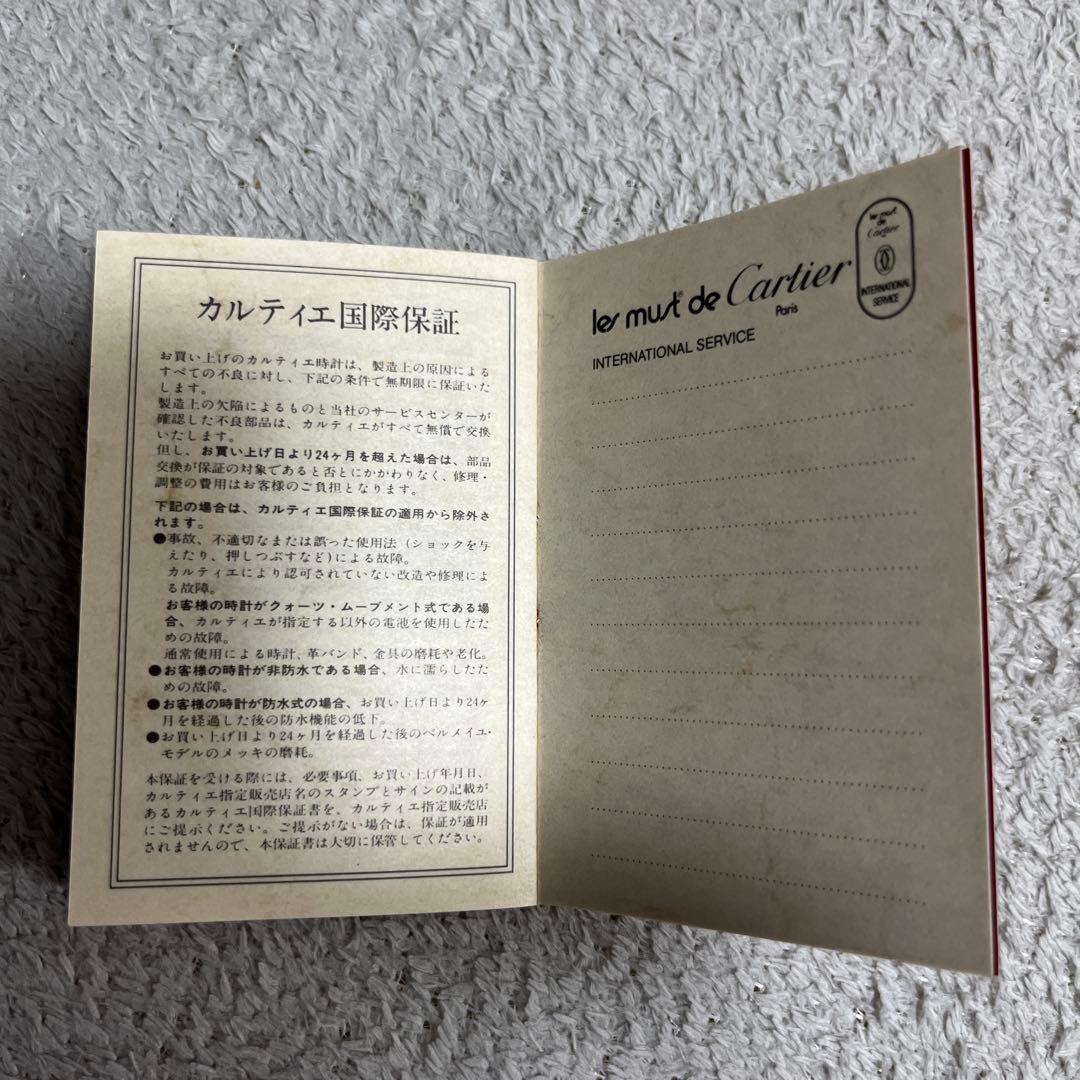 カルティエ国際保証
お買い上げのカルティエ時計は、製造上の原因による
すべての不良に対し、下記の条件で無期限に保証いた
します。
製造上の欠陥によるものと当社のサービスセンターが
確認した不良部品は、カルティエがすべて無償で交換
いたします。
但し、お買い上げ日より24ヶ月を超えた場合は、部品
交換が保証の対象であると否とにかかわりなく、修理・
調整の費用はお客様のご負担となります。
下記の場合は、カルティエ国際保証の適用から除外さ
れます。
●事故、不適切なまたは誤った使用法（ショックを与
えたり、押しつぶすなど）による故障。
カルティエにより認可されていない改造や修理によ
る故障。
お客様の時計がクォーツ・ムーブメント式である場
合、カルティエが指定する以外の電池を使用したた
めの故障。
通常使用による時計、革バンド、金具の磨耗や老化。
●お客様の時計が非防水である場合、水に濡らしたた
めの故障。
●お客様の時計が防水式の場合、お買い上げ日より24ヶ
月を経過した後の防水機能の低下。
●お買い上げ日より24ヶ月を経過した後のベルメイユ・
モデルのメッキの磨耗。
本保証を受ける際には、必要事項、お買い上げ年月日、
カルティエ指定販売店名のスタンプとサインの記載が
あるカルティエ国際保証書を、カルティエ指定販売店
にご提示ください。ご提示がない場合は、保証が適用
されませんので、本保証書は大切に保管してください。
les must® de Cartier
Paris
INTERNATIONAL SERVICE
les must
de
Cartier
INTERNATIONAL
SERVICE